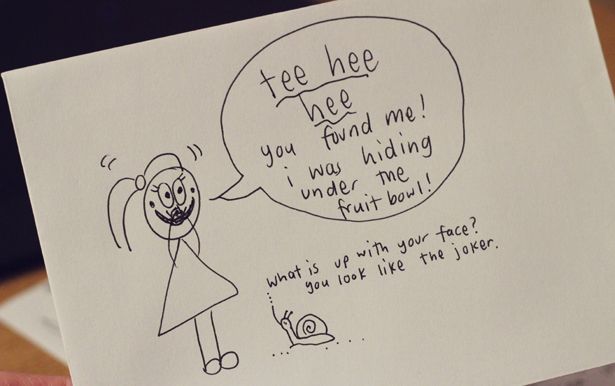 tee hee
hee
you found me!
i was hiding
under the
fruit bowl!
what is up with your face?
you look like the joker.